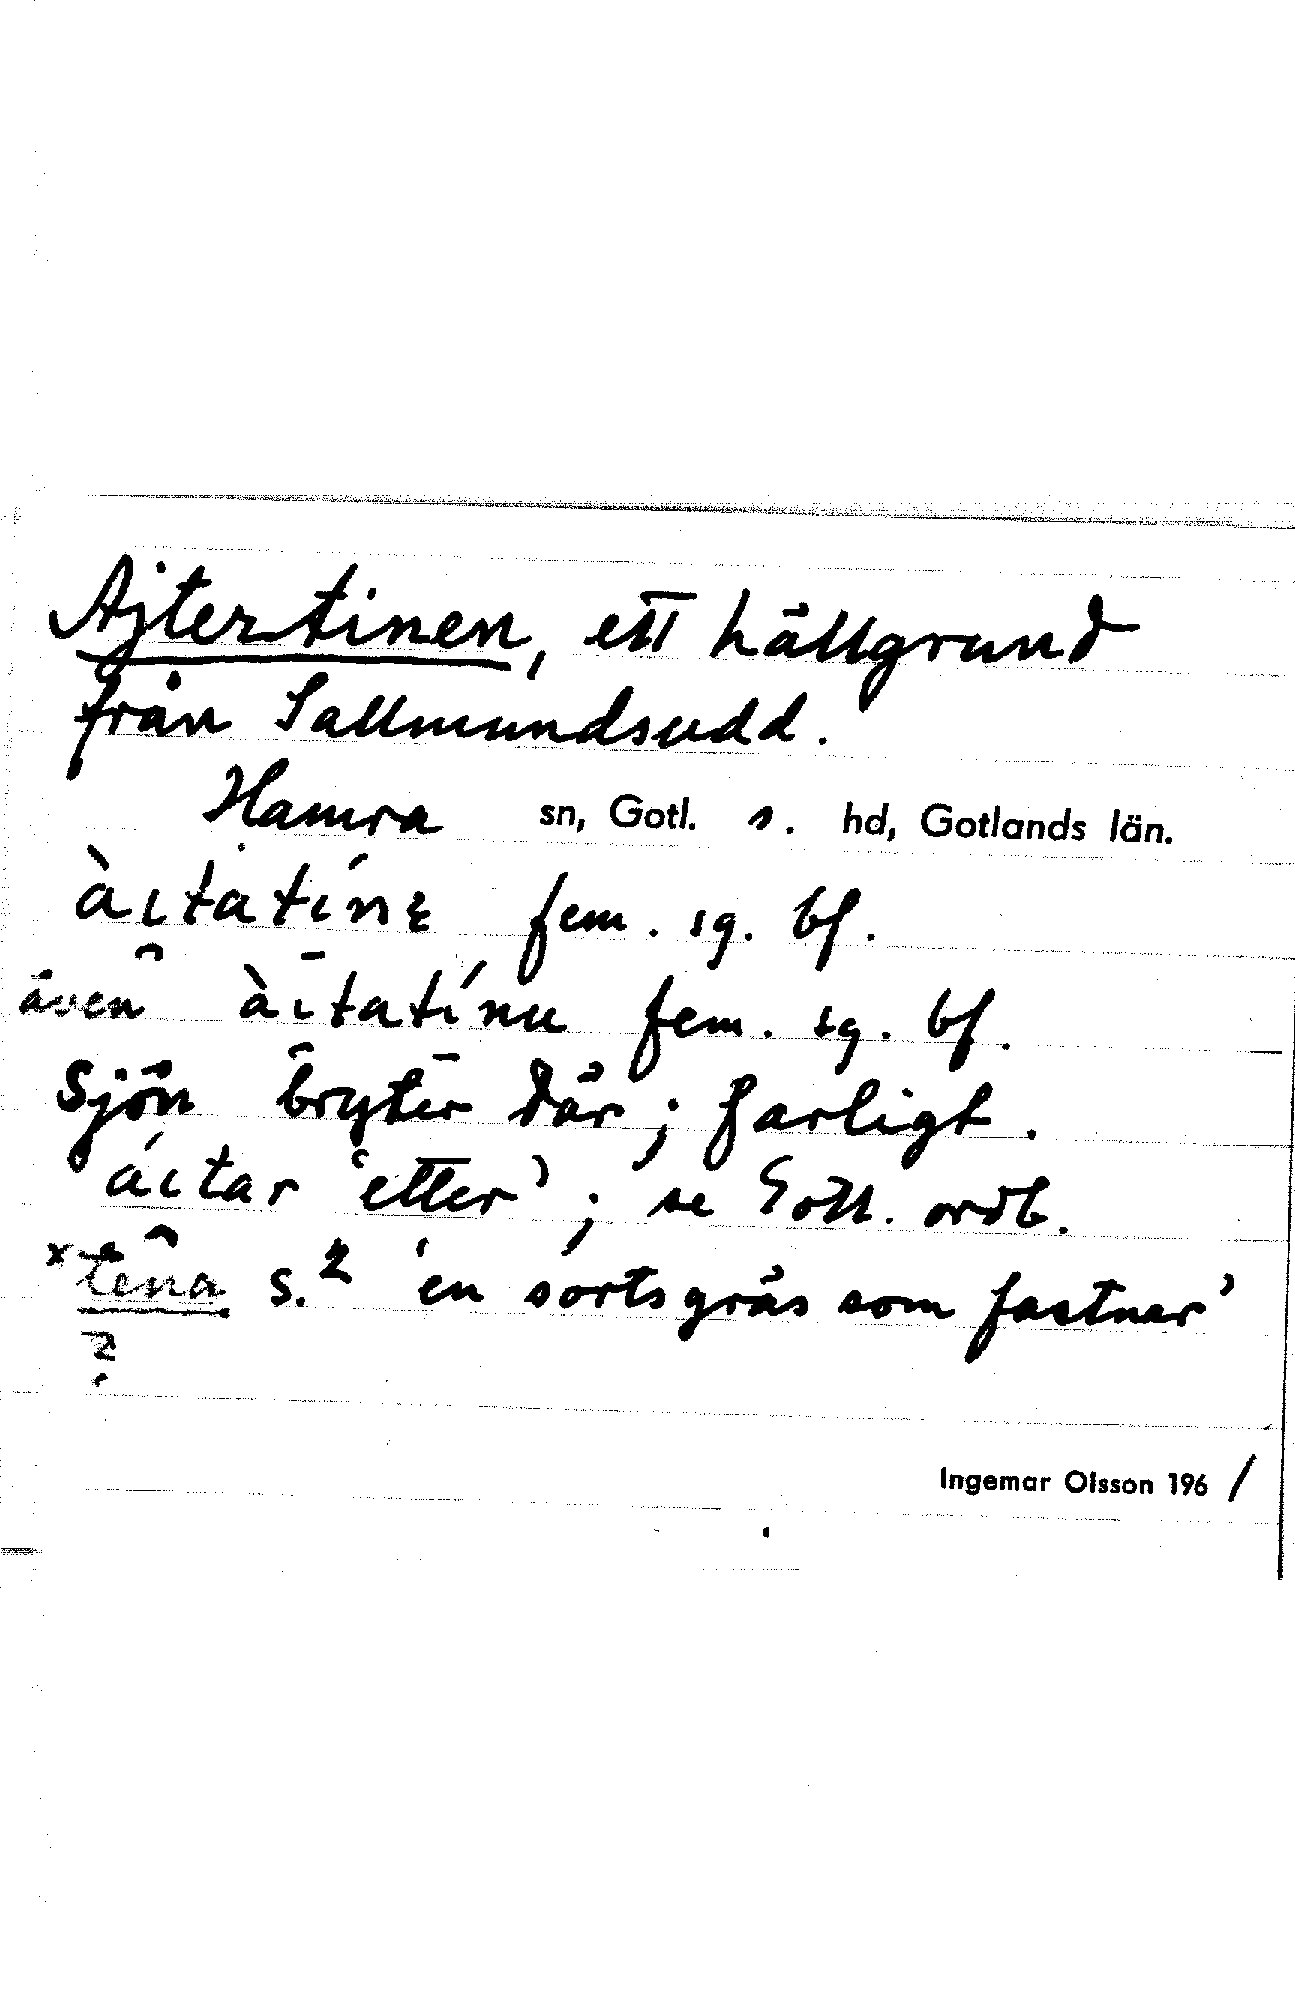 Ajtertinen, ett hällgrund
från Sallmundsudd.
Hamra sn, Gotl. s. hd, Gotlands län.
àıtatínɛ fem. sg. bf.
även àıtatínu fem. sg. bf.
Sjön bryter där; farligt.
áıtar 'etter'; se Gotl. ordb.
×têna s.2 'en sorts gräs som fastnar'
?
Ingemar Olsson 196/